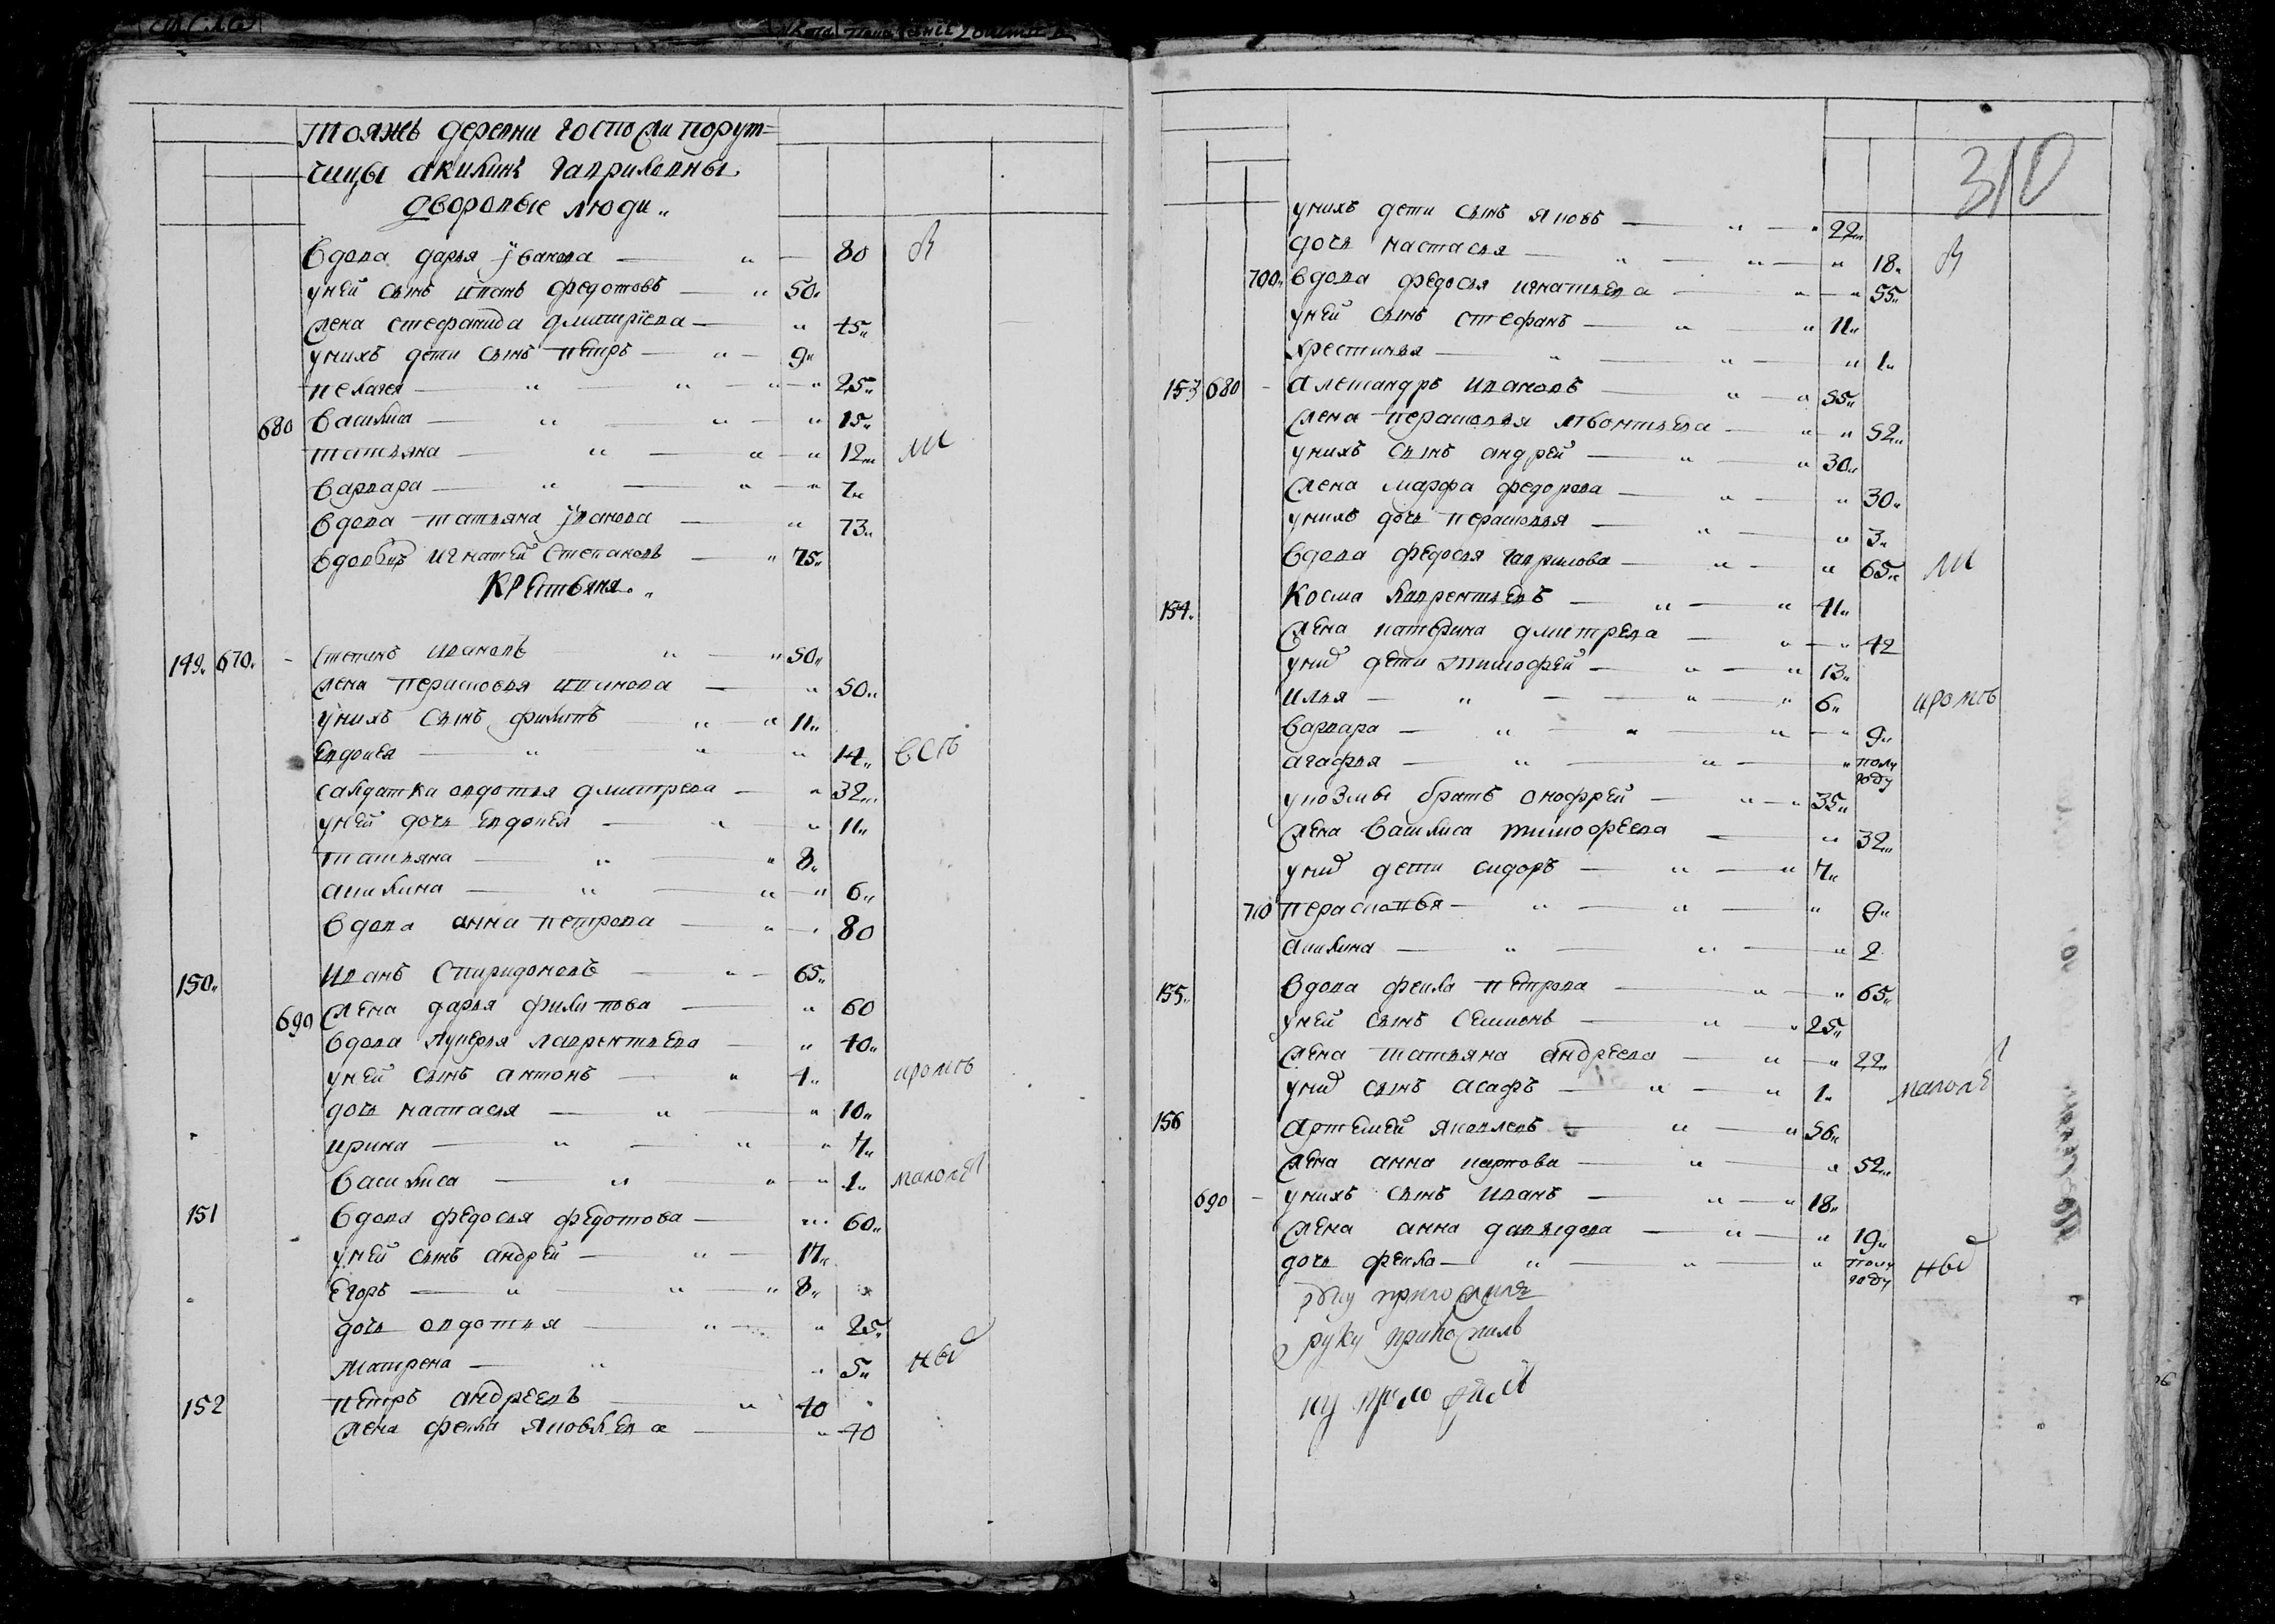 тояжъ деревни госпожи порут=
чицы акилины гавриловны
дворовые люди„
вдова дарья іванова 80
уней сынъ иванъ федотовъ 50
жена стефанида дмитріева 45
унихъ дети сынъ петръ 9
пелагея 25
680 василиса 15
татьяна 12
варвара 7
вдова татьяна іванова 73
вдовецъ игнатей степановъ 75
крестьяня
149 670 степанъ ивановъ 50
жена перасковья иванова 50
унихъ сынъ филипъ 11
евдокея 14
салдатка авдотья дмитрева 32
уней дочь евдокея 11
татьяна 8
акилина 6
вдова анна петрова 80
150 иванъ спиридоновъ 65
690 жена дарья филипова 60
вдова лукерья лаврентьева 40
уней сынъ антонъ 4
дочь настасья 10
ирина 7
василиса 1 малолѣ
151 вдова федосья федотова 60
уней сынъ андрей 17
егоръ 8
дочь авдотья 25
матрена 5
152 петръ андреевъ 40
жена фекла яковлева 40
310
унихъ дети сынъ яковъ 22
дочь настасья 18
700 вдова федосья игнатьева 55
уней сынъ стефанъ 11
хрестинья 1
153 680 александръ ивановъ 55
жена перасковья леонтьева 52
унихъ сынъ андрей 30
жена марфа федорова 30
унихъ дочь перасковья 3
вдова федосья гаврилова 65
154 косма лаврентьевъ 41
жена катерина дмитрева 42
унихъ дети тимофей 13
илья 6
варвара 9
агафья полу году
укозмы братъ онофрей 35
жена василиса тимофеева 32
унихъ дети сидоръ 7
710 перасковья 9
акилина 2
155 вдова фекла петрова 65
уней сынъ семионъ 25
жена татьяна андреева 22
унихъ сынъ асафъ 1 малолѣ
156 артемей яковлевъ 56
жена анна карпова 52
690 унихъ сынъ иванъ 18
жена анна давыдова 19
дочь фекла полу году
руку приложилъ